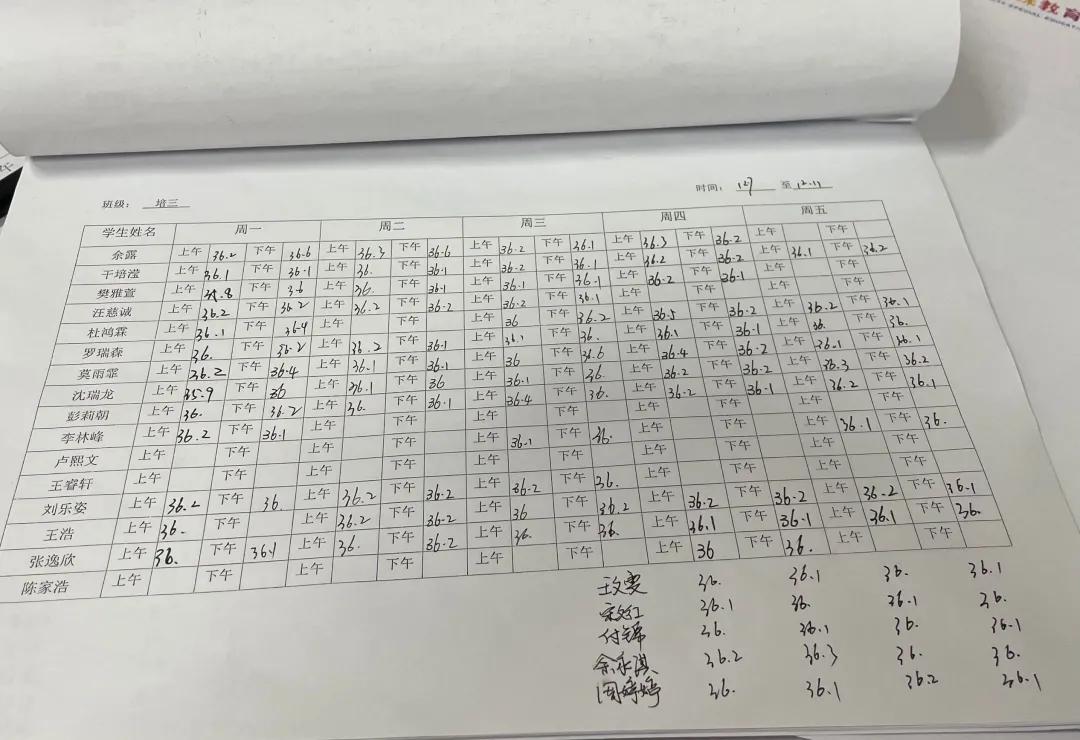 教育
SPECIAL EDUCA
班级: 培三 时间: 12.7 至 12.11
学生姓名 周一 周二 周三 周四 周五
余露 上午 36.2 下午 36.6 上午 36.3 下午 36.6 上午 36.2 下午 36.1 上午 36.3 下午 36.2 上午 下午
干培滢 上午 36.1 下午 36.1 上午 36. 下午 36.1 上午 36.2 下午 36.1 上午 36.2 下午 36.2 上午 36.1 下午 36.2
樊雅萱 上午 下午 36 上午 36. 下午 36.1 上午 36.1 下午 36.1 上午 36.2 下午 36.1 上午 下午
汪慈诚 上午 36.2 下午 36.2 上午 36.2 下午 36.2 上午 36.2 下午 36.1 上午 下午 上午 下午
杜鸿霖 上午 36.1 下午 36.4 上午 下午 上午 36 下午 36.2 上午 36.5 下午 36.2 上午 36.2 下午 36.1
罗瑞森 上午 36. 下午 36.2 上午 36.2 下午 36.1 上午 36.1 下午 36. 上午 36.1 下午 36.1 上午 36. 下午 36.
莫雨霏 上午 36.2 下午 36.4 上午 36.1 下午 36.1 上午 36 下午 36.6 上午 36.4 下午 36.2 上午 36.1 下午 36.1
沈瑞龙 上午 35.9 下午 36 上午 36.1 下午 36 上午 36.1 下午 36. 上午 36.2 下午 36.2 上午 36.3 下午 36.2
彭莉朝 上午 36. 下午 36.2 上午 36. 下午 36.1 上午 36.4 下午 36. 上午 36.2 下午 36.1 上午 36.2 下午 36.1
李林峰 上午 36.2 下午 36.1 上午 下午 上午 下午 上午 下午 上午 下午
卢熙文 上午 下午 上午 下午 上午 36.1 下午 36. 上午 下午 上午 36.1 下午 36.
王睿轩 上午 下午 上午 下午 上午 下午 上午 下午 上午 下午
刘乐姿 上午 36.2 下午 36. 上午 36.2 下午 36.2 上午 36.2 下午 36. 上午 下午 上午 下午
王浩 上午 36. 下午 上午 36.2 下午 36.2 上午 36 下午 36.2 上午 36.2 下午 36.2 上午 36.2 下午 36.1
张逸欣 上午 36. 下午 36.1 上午 36. 下午 36.2 上午 36. 下午 36. 上午 36.1 下午 36.1 上午 36.1 下午 36.
陈家浩 上午 下午 上午 下午 上午 下午 上午 36 下午 36. 上午 下午
36. 36.1 36. 36.1
36.1 36. 36.1 36.
付锦 36. 36.1 36. 36.1
余永淇 36.2 36.3 36. 36.
周婷婷 36. 36.1 36.2 36.1